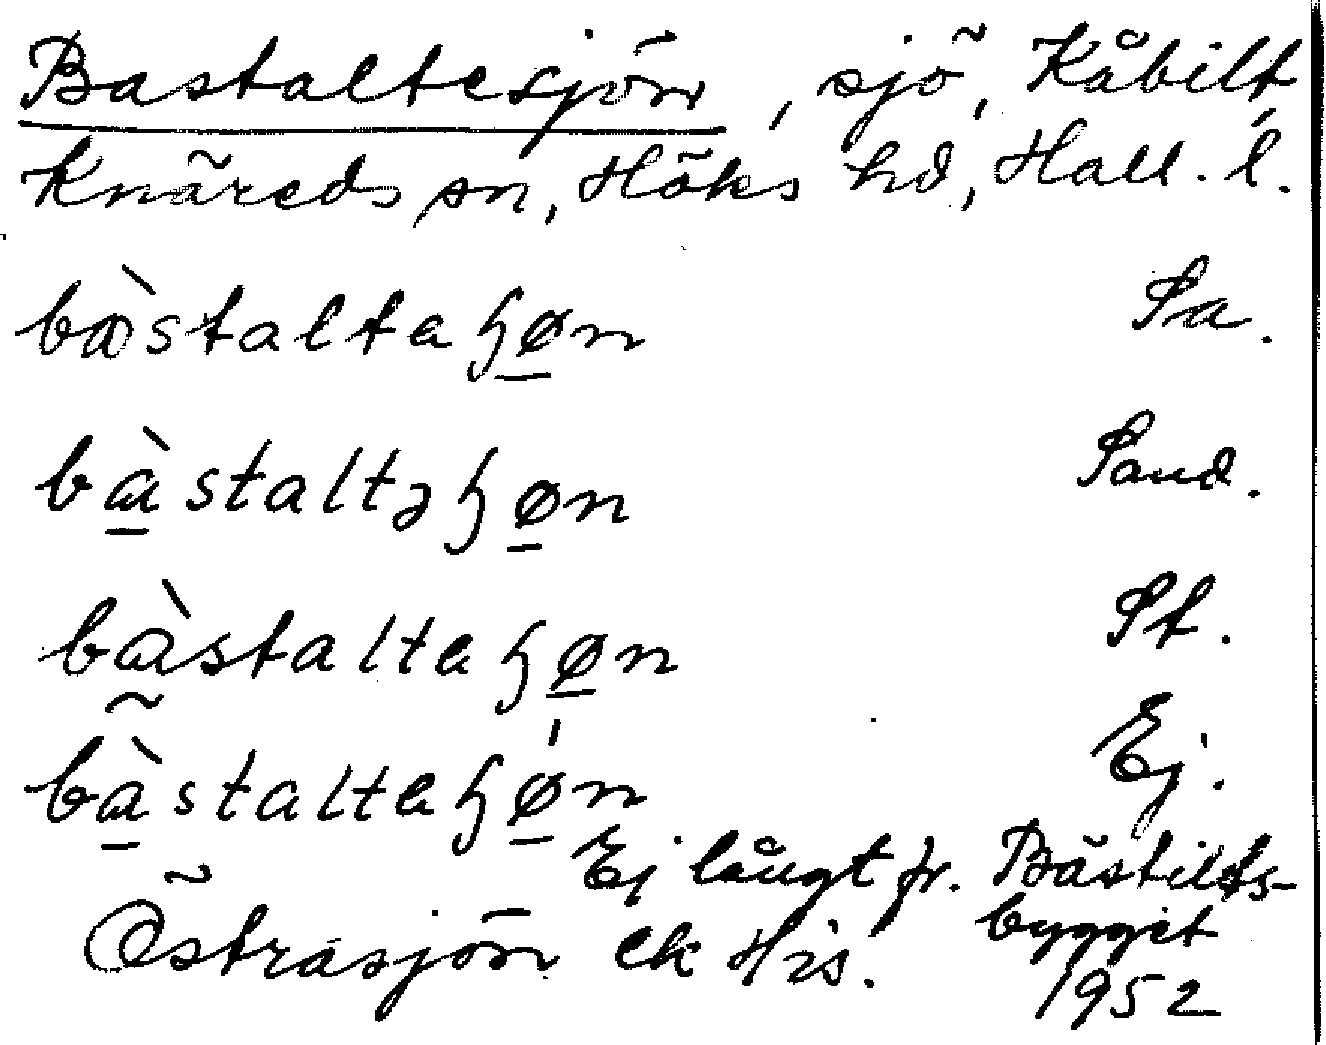 Bastaltesjön, sjö, Kåbilt,
Knäreds sn, Höks hd, Hall. l.
bàstaltaɧøn Sa.
bàstaltəɧøn Sand.
bàstaltaɧøn St.
bàstaltaɧøn Ej.
Ej långt fr. Bästilts-
bygget
Östrasjön ek His.
1952